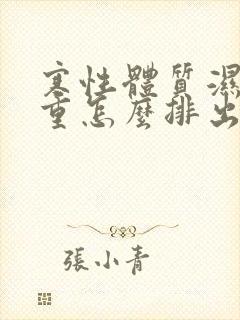 寒性體質濕
重怎麼排出
張小青